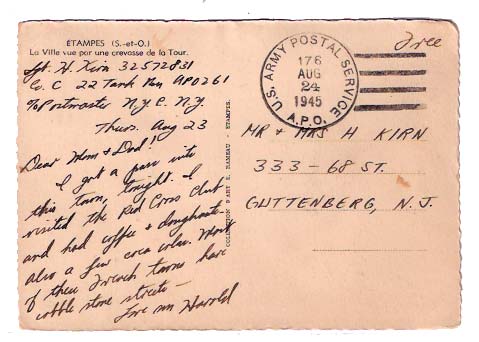 ÉTAMPES (S.-et-O.)
La Ville vue par une crevasse de la Tour.
Sgt. H. Kirn 32572831
Co. C 22 Tank Bn APO 261
c/o Postmaster N.Y.C. N.Y.
Thurs. Aug 23
Dear Mom & Dad!
I got a pass into
this town, tonight. I
visited the Red Cross Club
and had coffee & doughnuts.
Also a few coca colas. Most
of these French towns have
cobble stone streets—
Love Harold
COLLECTION D'ART E. RAMEAU - ÉTAMPES.
U.S. ARMY POSTAL SERVICE
176
AUG
24
1945
A.P.O.
Free
MR & MRS H KIRN
333-68 ST.
GUTTENBERG, N.J.